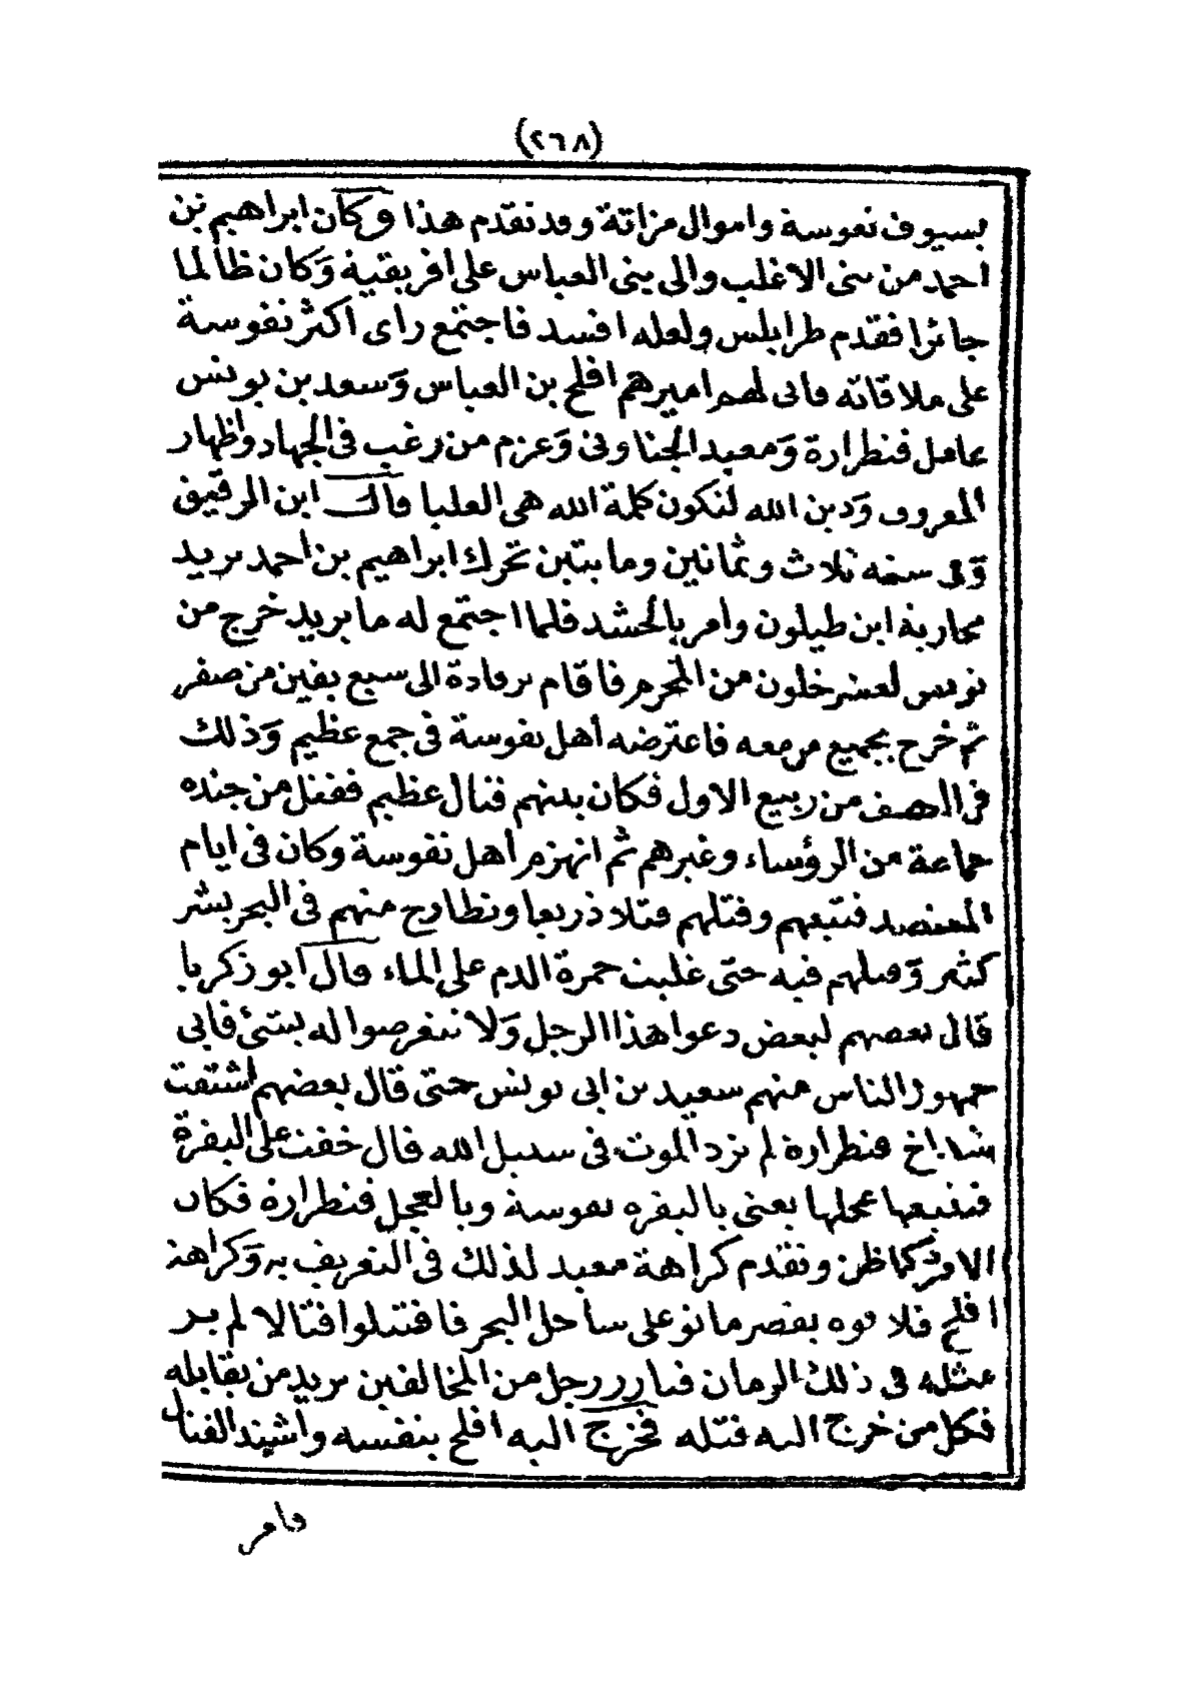 (٢٦٨)
بسيوف نفوسة واموال مزاتة وقد تقدم هذا وكان ابراهيم بن
احمد من بنى الاغلب والى بنى العباس على افريقية وَكان ظالما
جائرا فقدم طرابلس ولعله افسد فاجتمع راى اكثر نفوسة
على ملاقاته فابى لهم اميرهم افلح بن العباس وَسعد بن يونس
عامل قنطرارة وَمعبد الجناونى وَعزم من رغب فى الجهاد واظهار
المعروف وَدين الله لتكون كلمة الله هى العليا قال ابن الرقيق
وَفى سنة ثلاث وثمانين وما يتين تحرك ابراهيم بن احمد يريد
محاربة ابن طيلون وامر بالحشد فلما اجتمع له ما يريد خرج من
تونس لعشر خلون من المحرم فاقام برقادة الى سبع بقين من صفر
ثم خرج بجميع من معه فاعترضه أهل نفوسة فى جمع عظيم وَذلك
فى النصف من ربيع الاول فكان بينهم قتال عظيم فقتل من جنده
جماعة من الرؤساء وغيرهم ثم انهزم أهل نفوسة وكان فى ايام
المعتضد فتبعهم وقتلهم قتلا ذريعا وتطارح منهم فى البحر بشر
كثير وَقتلهم فيه حتى غلبت حمرة الدم على الماء قال ابو زكريا
قال بعضهم لبعض دعوا هذا الرجل وَلا تتعرضوا له بشئ فابى
جمهور الناس منهم سعيد بن ابى يونس حتى قال بعضهم اشتقت
شداخ قنطرارة لم نرد الموت فى سبيل الله قال خفت على البقرة
فيتبعها عجلها يعنى بالبقره نفوسة وبالعجل قنطرارة فكان
الامر كما ظن وتقدم كراهة معبد لذلك فى التعريف به وَكراهة
افلح فلاقوه بقصر مانو على ساحل البحر فاقتتلوا قتالا لم ير
مثله فى ذلك الزمان فبارز رجل من المخالفين يريد من يقابله
فكل من خرج اليه قتله فخرج اليه افلح بنفسه واشتد القتال
فامر